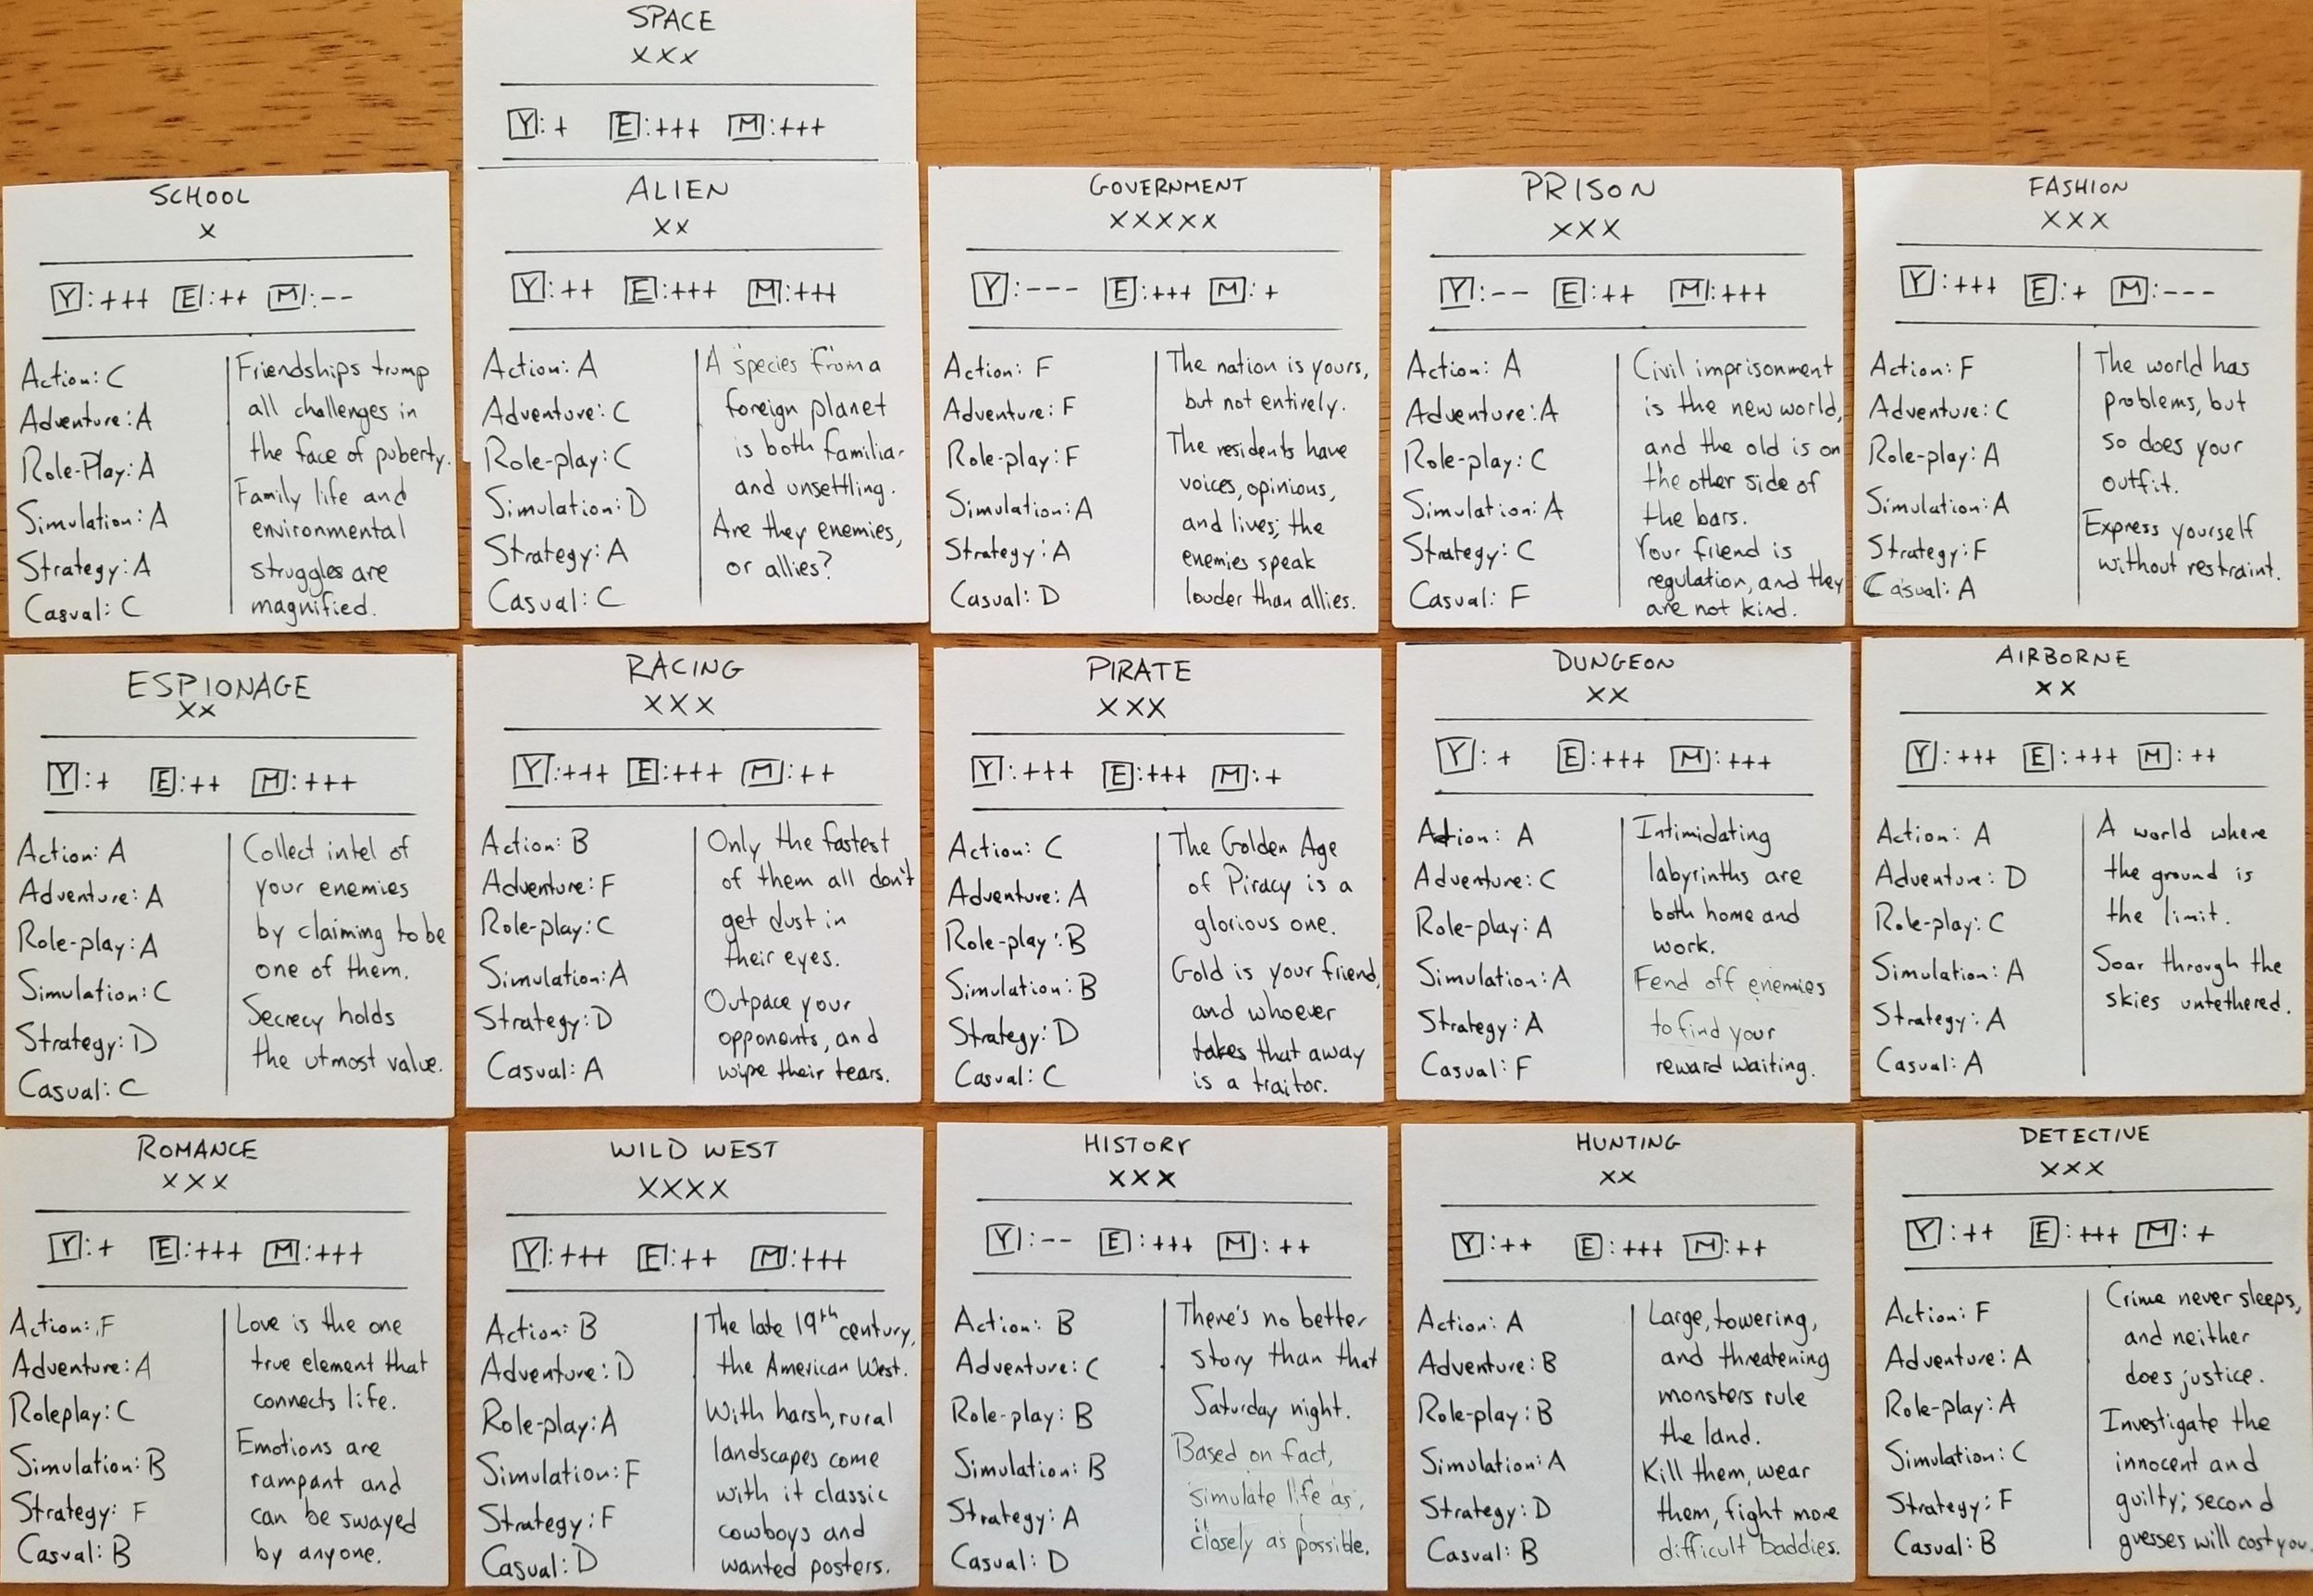 SPACE
XXX
Y: + E: +++ M: +++
SCHOOL
X
Y: +++ E: ++ M: --
Action: C
Adventure: A
Role-Play: A
Simulation: A
Strategy: A
Casual: C
Friendships trump
all challenges in
the face of puberty.
Family life and
environmental
struggles are
magnified.
ALIEN
XX
Y: ++ E: +++ M: +++
Action: A
Adventure: C
Role-play: C
Simulation: D
Strategy: A
Casual: C
A species from a
foreign planet
is both familiar
and unsettling.
Are they enemies,
or allies?
GOVERNMENT
XXXXX
Y: --- E: +++ M: +
Action: F
Adventure: F
Role-play: F
Simulation: A
Strategy: A
Casual: D
The nation is yours,
but not entirely.
The residents have
voices, opinions,
and lives; the
enemies speak
louder than allies.
PRISON
XXX
Y: -- E: ++ M: +++
Action: A
Adventure: A
Role-play: C
Simulation: A
Strategy: C
Casual: F
Civil imprisonment
is the new world,
and the old is on
the other side of
the bars.
Your friend is
regulation, and they
are not kind.
FASHION
XXX
Y: +++ E: + M: ---
Action: F
Adventure: C
Role-play: A
Simulation: A
Strategy: F
Casual: A
The world has
problems, but
so does your
outfit.
Express yourself
without restraint.
ESPIONAGE
XX
Y: + E: ++ M: +++
Action: A
Adventure: A
Role-play: A
Simulation: C
Strategy: D
Casual: C
Collect intel of
your enemies
by claiming to be
one of them.
Secrecy holds
the utmost value.
RACING
XXX
Y: +++ E: +++ M: ++
Action: B
Adventure: F
Role-play: C
Simulation: A
Strategy: D
Casual: A
Only the fastest
of them all don't
get dust in
their eyes.
Outpace your
opponents, and
wipe their tears.
PIRATE
XXX
Y: +++ E: +++ M: +
Action: C
Adventure: A
Role-play: B
Simulation: B
Strategy: D
Casual: C
The Golden Age
of Piracy is a
glorious one.
Gold is your friend,
and whoever
takes that away
is a traitor.
DUNGEON
XX
Y: + E: +++ M: +++
Action: A
Adventure: C
Role-play: A
Simulation: A
Strategy: A
Casual: F
Intimidating
labyrinths are
both home and
work.
Fend off enemies
to find your
reward waiting.
AIRBORNE
XX
Y: +++ E: +++ M: ++
Action: A
Adventure: D
Role-play: C
Simulation: A
Strategy: A
Casual: A
A world where
the ground is
the limit.
Soar through the
skies untethered.
ROMANCE
XXX
Y: + E: +++ M: +++
Action: F
Adventure: A
Roleplay: C
Simulation: B
Strategy: F
Casual: B
Love is the one
true element that
connects life.
Emotions are
rampant and
can be swayed
by anyone.
WILD WEST
XXXX
Y: +++ E: ++ M: +++
Action: B
Adventure: D
Role-play: A
Simulation: F
Strategy: F
Casual: D
The late 19th century,
the American West.
With harsh, rural
landscapes come
with it classic
cowboys and
wanted posters.
HISTORY
XXX
Y: -- E: +++ M: ++
Action: B
Adventure: C
Role-play: B
Simulation: B
Strategy: A
Casual: D
There's no better
story than that
Saturday night.
Based on fact,
simulate life as
closely as possible.
HUNTING
XX
Y: ++ E: +++ M: ++
Action: A
Adventure: B
Role-play: B
Simulation: A
Strategy: D
Casual: B
Large, towering,
and threatening
monsters rule
the land.
Kill them, wear
them, fight more
difficult baddies.
DETECTIVE
XXX
Y: ++ E: +++ M: +
Action: F
Adventure: A
Role-play: A
Simulation: C
Strategy: F
Casual: B
Crime never sleeps,
and neither
does justice.
Investigate the
innocent and
guilty; second
guesses will cost you.